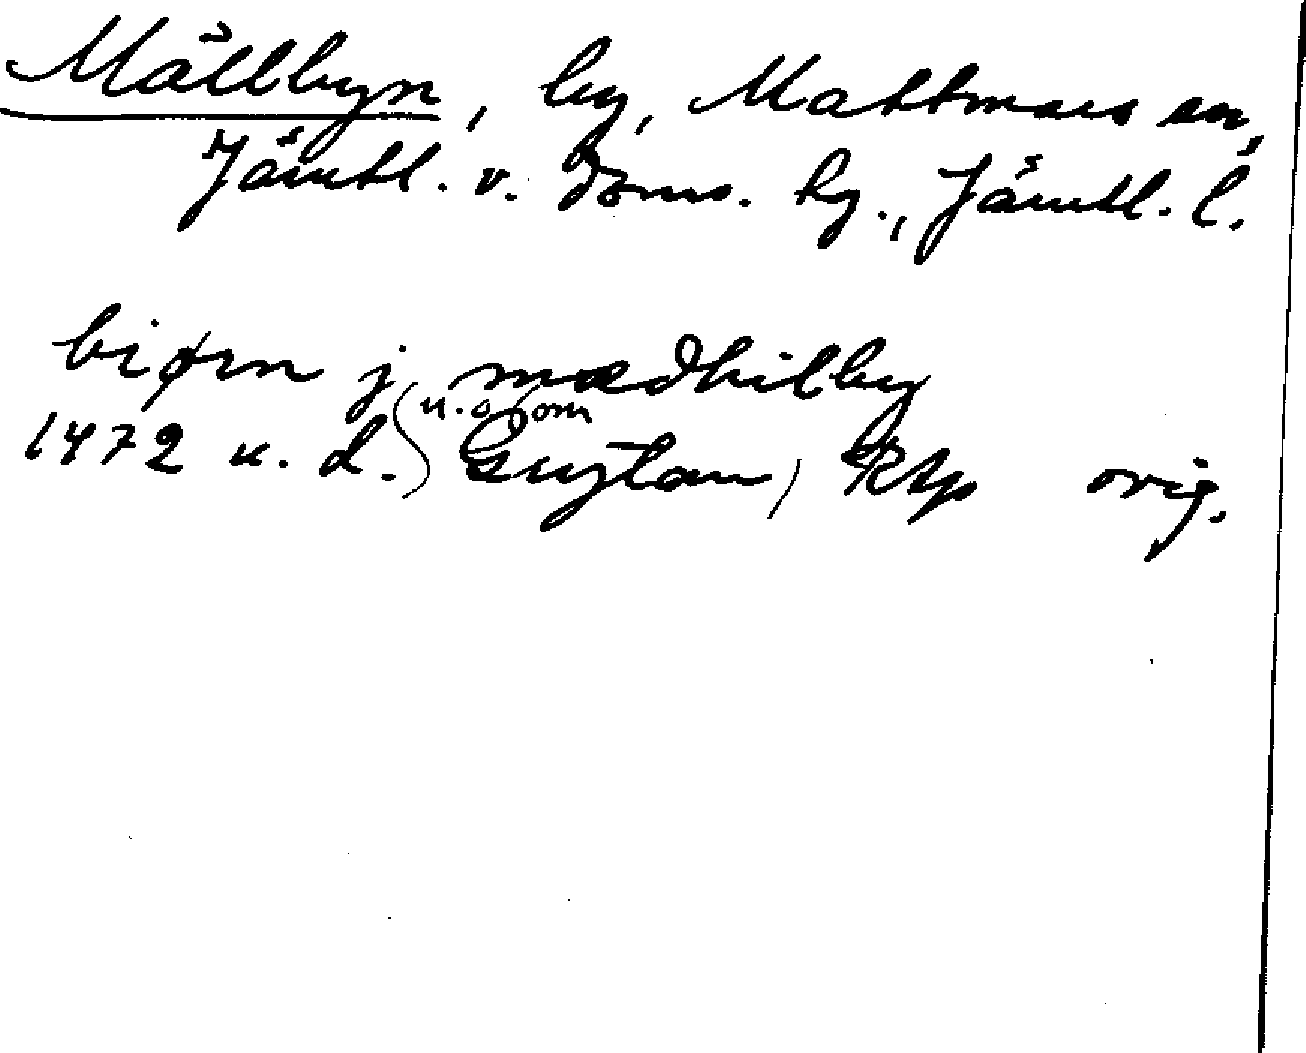 Mällbyn, by, Mattmars sn,
Jämtl. v. doms. hg., Jämtl. l.
biørn j mædhilby
1472 u. d. (u. o., om Gug̅lan) RAp orig.